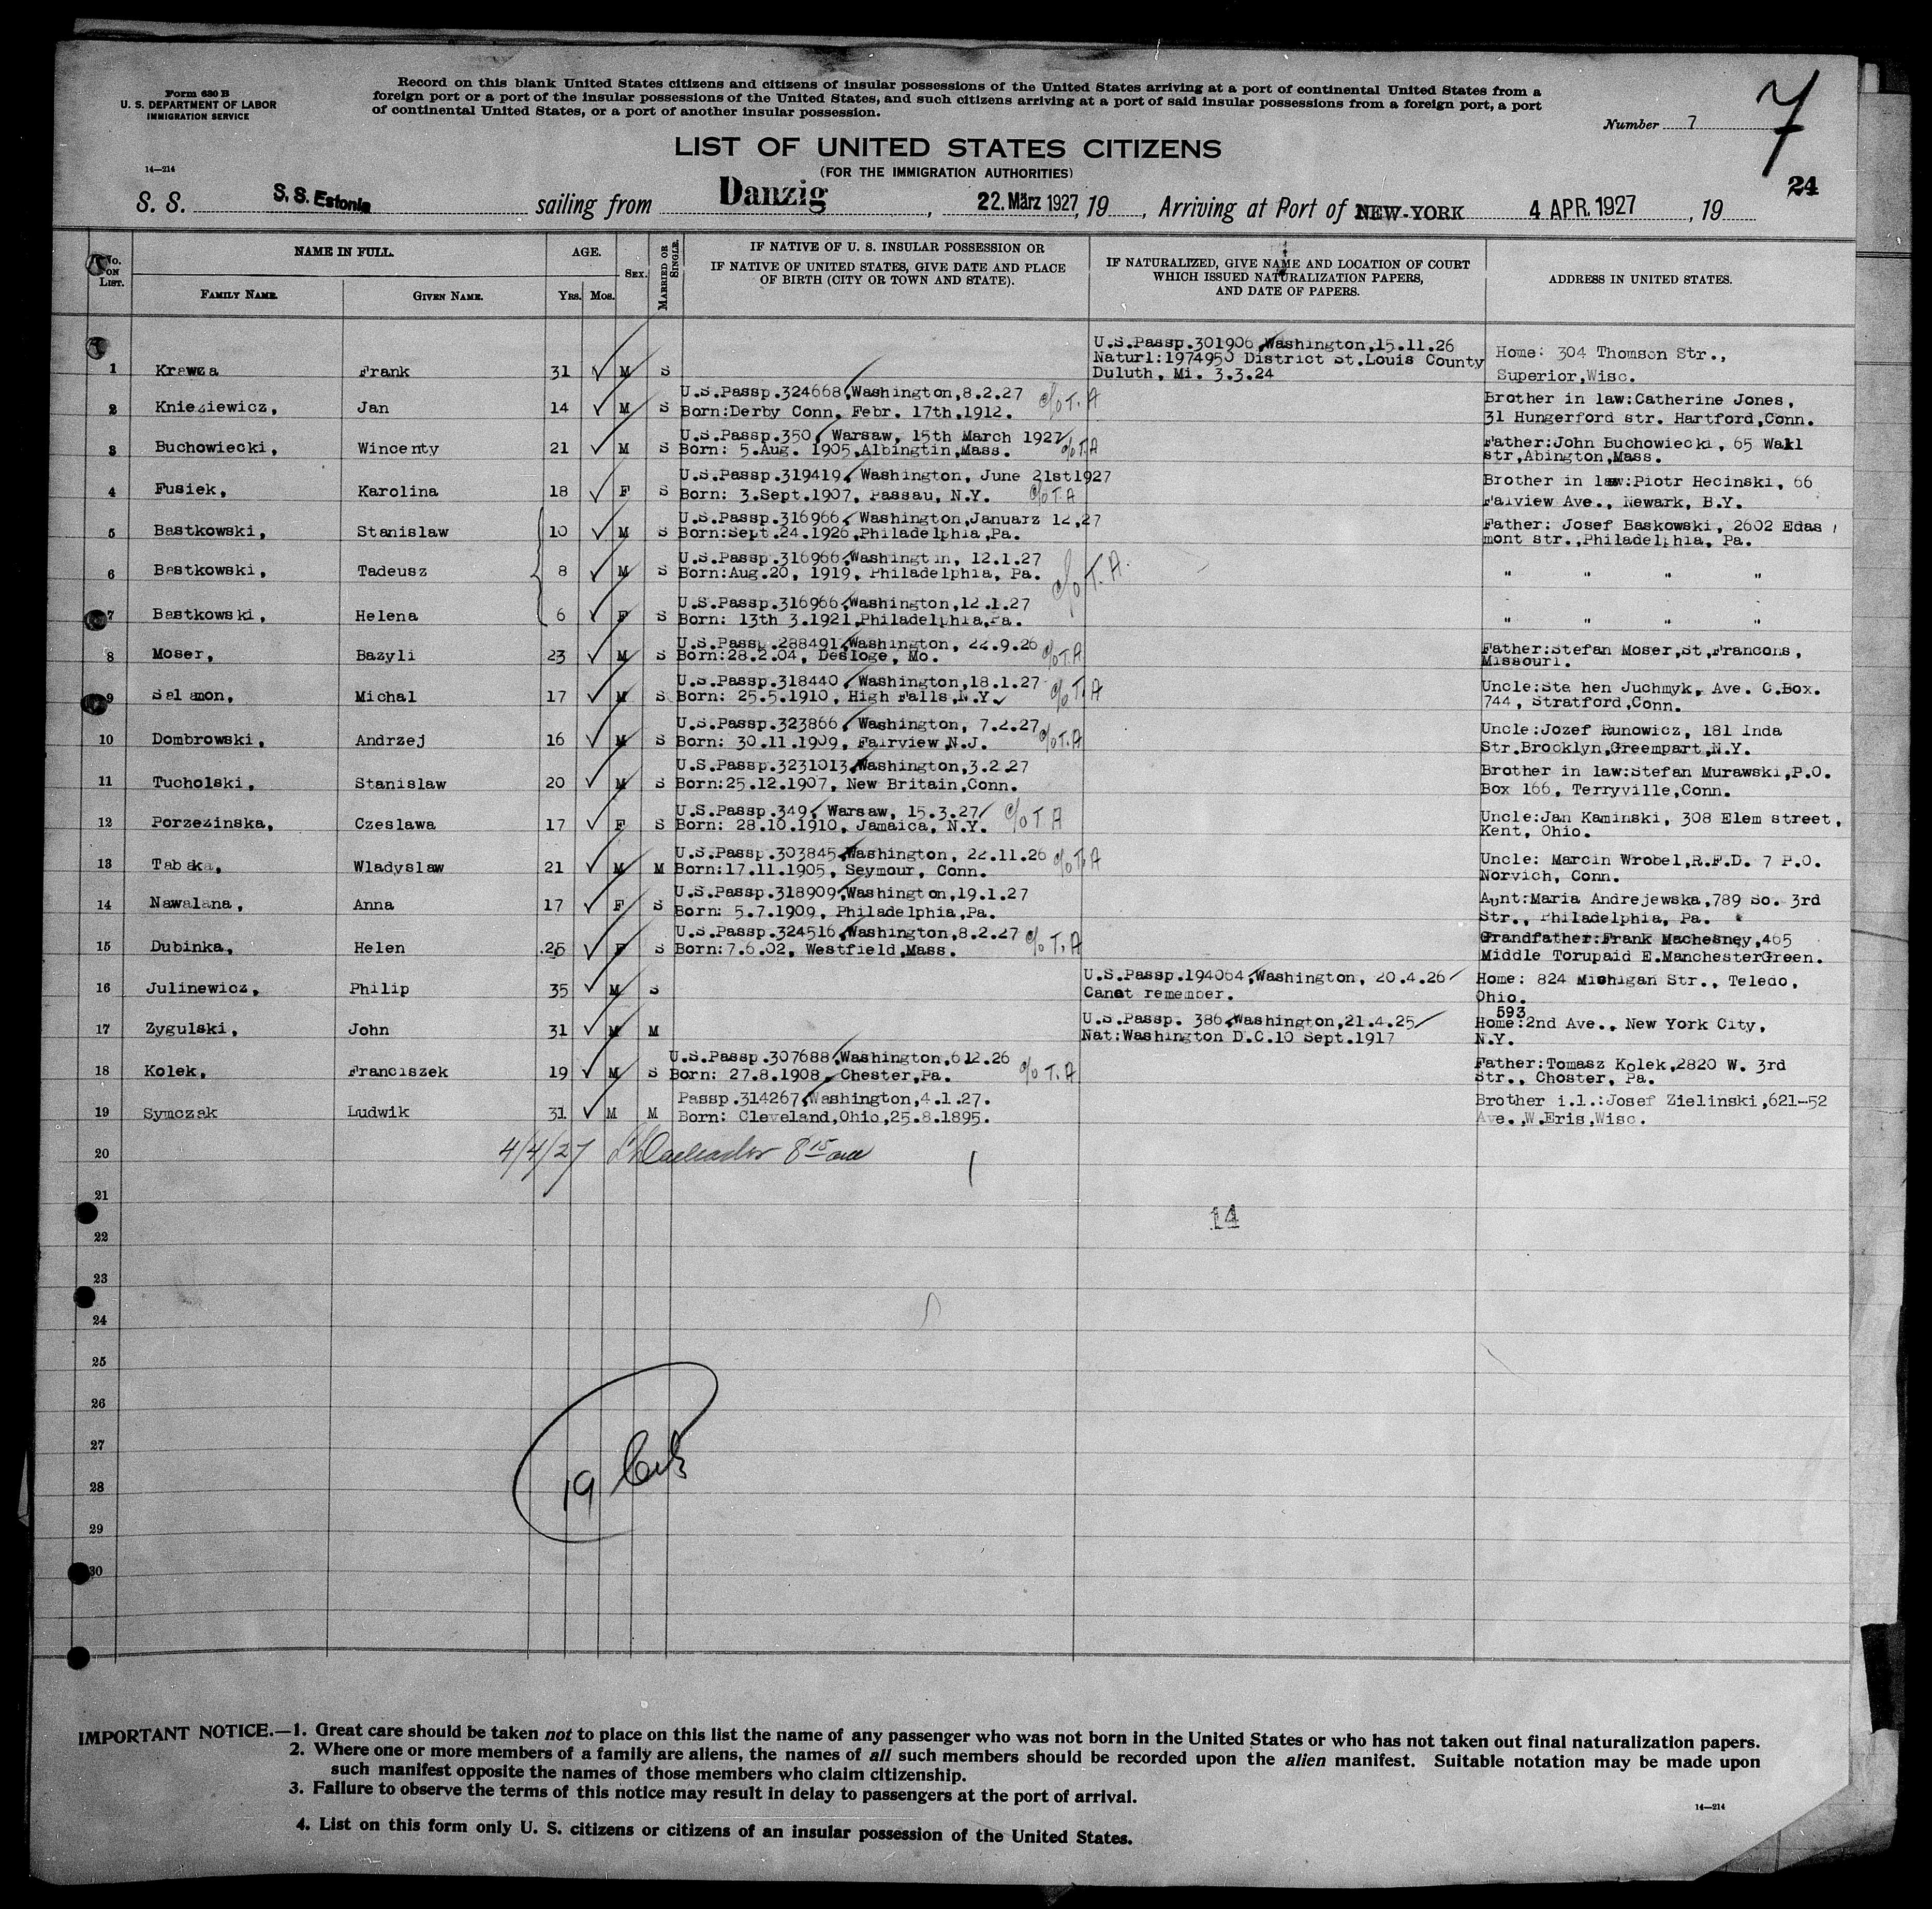 Form 630 B
U. S. DEPARTMENT OF LABOR
IMMIGRATION SERVICE
14—214
Record on this blank United States citizens and citizens of insular possessions of the United States arriving at a port of continental United States from a
foreign port or a port of the insular possessions of the United States, and such citizens arriving at a port of said insular possessions from a foreign port, a port
of continental United States, or a port of another insular possession.
Number 7
7
24
LIST OF UNITED STATES CITIZENS
(FOR THE IMMIGRATION AUTHORITIES)
S. S. S. S. Estonia sailing from Danzig, 22. März 1927, 19, Arriving at Port of NEW-YORK 4 APR. 1927, 19
No. ON LIST.
NAME IN FULL.
FAMILY NAME.
GIVEN NAME.
AGE.
YRS. MOS.
SEX.
MARRIED OR SINGLE.
IF NATIVE OF U. S. INSULAR POSSESSION OR
IF NATIVE OF UNITED STATES, GIVE DATE AND PLACE
OF BIRTH (CITY OR TOWN AND STATE).
IF NATURALIZED, GIVE NAME AND LOCATION OF COURT
WHICH ISSUED NATURALIZATION PAPERS,
AND DATE OF PAPERS.
ADDRESS IN UNITED STATES.
U.S.Passp.301906,Washington,15.11.26
Naturl:1974950 District St.Louis County Home: 304 Thomson Str.,
1 Krawza Frank 31 M S Duluth, Mi. 3.3.24 Superior,Wisc.
U.S.Passp.324668,Washington,8.2.27 c/o T.A Brother in law:Catherine Jones,
2 Knieziewicz, Jan 14 M S Born:Derby Conn, Febr. 17th.1912. 31 Hungerford str. Hartford,Conn.
U.S.Passp.350, Warsaw, 15th March 1927 Father:John Buchowiecki, 65 Wakl
3 Buchowiecki, Wincenty 21 M S Born: 5.Aug. 1905,Albingtin,Mass. c/o T.A str,Abington,Mass.
U.S.Passp.319419, Washington, June 21st1927 Brother in law:Piotr Hecinski, 66
4 Fusiek, Karolina 18 F S Born: 3.Sept.1907, Passau, N.Y. c/o T A Fairview Ave., Newark, B.Y.
U.S.Passp.316966, Washington,Januarz 12,27 Father: Josef Baskowski, 2602 Edas
5 Bastkowski, Stanislaw 10 M S Born:Sept.24.1926,Philadelphia,Pa. mont str.,Philadelphia, Pa.
U.S.Passp.316966,Washingt in, 12.1.27
6 Bastkowski, Tadeusz 8 M S Born:Aug.20, 1919, Philadelphia, Pa. c/o T.A. " " " "
U.S.Passp.316966,Washington,12.1.27
7 Bastkowski, Helena 6 F S Born: 13th 3.1921,Philadelphia,Pa. " " " "
U.S.Passp.288491,Washington, 22.9.26 Father:Stefan Moser,St,Francons,
8 Moser, Bazyli 23 M S Born:28.2.04, Desloge, Mo. c/o T.A Missouri.
U.S.Passp.318440, Washington,18.1.27 Uncle:Ste hen Juchmyk, Ave. C.Box.
9 Salamon, Michal 17 M S Born: 25.5.1910, High Falls,N.Y. c/o T,A 744, Stratford,Conn.
U.S.Passp.323866, Washington, 7.2.27 Uncle:Jozef Runowicz, 181 Inda
10 Dombrowski, Andrzej 16 M S Born: 30.11.1909, Fairview N.J. c/o T.A Str.Brooklyn,Greempart,N.Y.
U.S.Passp.3231013,Washington,3.2.27 Brother in law:Stefan Murawski,P.O.
11 Tucholski, Stanislaw 20 M S Born:25.12.1907, New Britain,Conn. Box 166, Terryville,Conn.
U.S.Passp.349, Warsaw, 15.3.27 c/o T A Uncle:Jan Kaminski, 308 Elem street,
12 Porzezinska, Czeslawa 17 F S Born: 28.10.1910, Jamaica, N.Y. Kent, Ohio.
U.S.Passp.303845,Washington, 22.11.26 c/o T.A Uncle: Marcin Wrobel,R.F.D. 7 P.O.
13 Tabaka, Wladyslaw 21 M M Born:17.11.1905, Seymour, Conn. Norvich, Conn.
U.S.Passp.318909,Washington,19.1.27 Aunt:Maria Andrejewska,789 So. 3rd
14 Nawalana, Anna 17 F S Born: 5.7.1909, Philadelphia,Pa. Str., Philadelphia, Pa.
U.S.Passp.324516,Washington,8.2.27 c/o T.A Grandfather:Frank Machesney,465
15 Dubinka, Helen 25 F S Born:7.6.02, Westfield,Mass. Middle Torupaid E.ManchesterGreen.
U.S.Passp.194064,Washington, 20.4.26 Home: 824 Michigan Str., Teledo,
16 Julinewicz, Philip 35 M S Canot remember. Ohio.
593
U.S.Passp. 386,Washington,21.4.25 Home:2nd Ave., New York City,
17 Zygulski, John 31 M M Nat:Washington D.C.10 Sept.1917 N.Y.
U.S.Passp.307688,Washington,612.26 Father:Tomasz Kolek,2820 W. 3rd
18 Kolek, Franciszek 19 M S Born: 27.8.1908, Chester,Pa. c/o T.A Str., Choster, Pa.
Passp.314267,Washington,4.1.27. Brother i.l.:Josef Zielinski,621-52
19 Symczak Ludwik 31 M M Born: Cleveland,Ohio,25.8.1895. Ave.,W.Eris,Wisc.
20 4/4/27 8 15
21
14
22
23
24
25
26
27
19
28
29
30
IMPORTANT NOTICE.—1. Great care should be taken not to place on this list the name of any passenger who was not born in the United States or who has not taken out final naturalization papers.
2. Where one or more members of a family are aliens, the names of all such members should be recorded upon the alien manifest. Suitable notation may be made upon
such manifest opposite the names of those members who claim citizenship.
3. Failure to observe the terms of this notice may result in delay to passengers at the port of arrival.
14—214
4. List on this form only U. S. citizens or citizens of an insular possession of the United States.